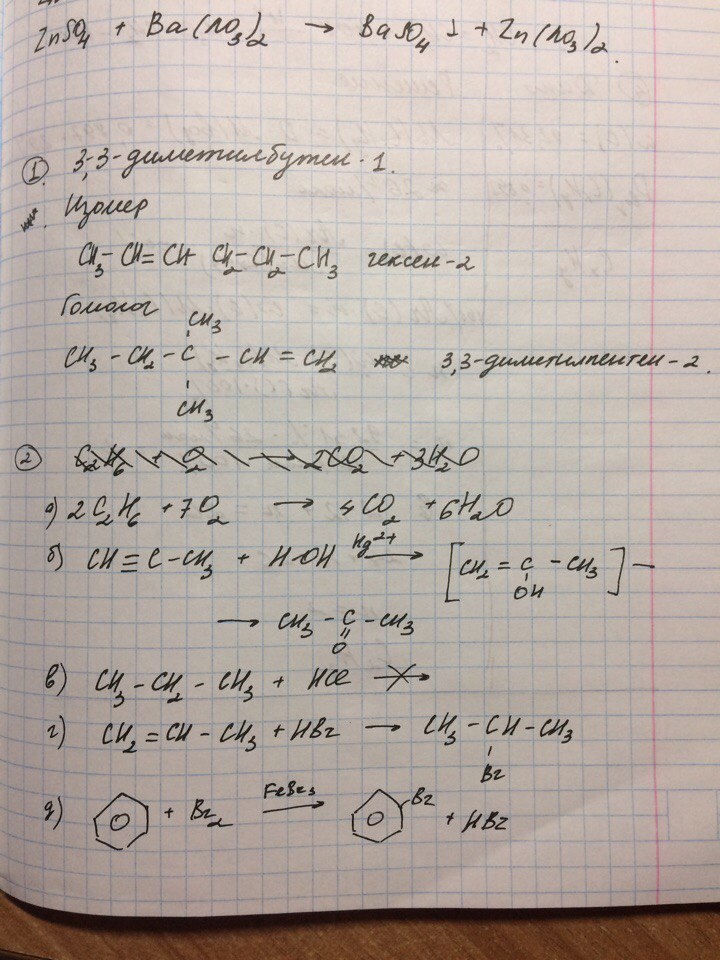 ZnSO₄ + Ba(NO₃)₂ → BaSO₄ ↓ + Zn(NO₃)₂.
① 3,3-диметилбутен-1.
Изомер
CH₃-CH=CH CH₂-CH₂-CH₃ гексен-2
Гомолог
CH₃
CH₃-CH₂-C-CH=CH₂ 3,3-диметилпентен-2.
CH₃
② C₂H₆ + O₂ → 2CO₂ + 3H₂O
а) 2C₂H₆ + 7O₂ → 4CO₂ + 6H₂O
б) CH≡C-CH₃ + H-OH Hg²⁺ → [CH₂=C-CH₃] —
OH
→ CH₃-C-CH₃
O
в) CH₃-CH₂-CH₃ + HCl ↛
г) CH₂=CH-CH₃ + HBr → CH₃-CH-CH₃
Br
д) + Br₂ FeBr₃ → Br + HBr